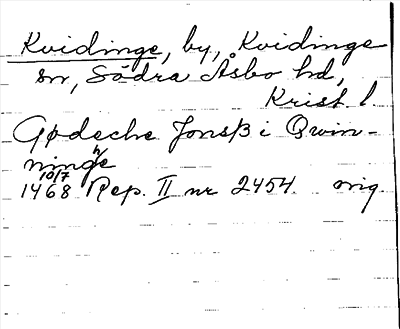 Kvidinge, by, Kvidinge
sn, Södra Åsbo hd,
Krist. l.
Gødeche Jonsβ i Qwin-
ninge
10/7
1468 Rep. II nr 2454 orig.